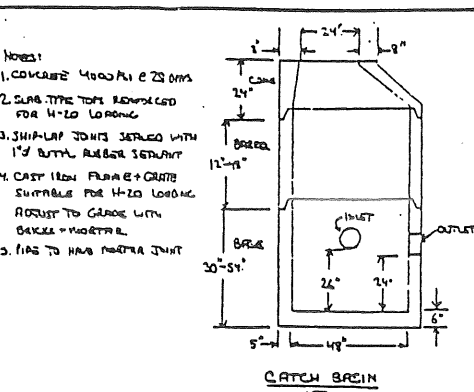 NOTES:
1. CONCRETE 4000 PSI @ 28 DAYS
2. SLAB TYPE TOPS REINFORCED
FOR H-20 LOADING
3. SHIP-LAP JOINTS SEALED WITH
1"∅ BUTYL RUBBER SEALANT
4. CAST IRON FRAME + GRATE
SUITABLE FOR H-20 LOADING
ADJUST TO GRADE WITH
BRICK + MORTAR
5. PIPE TO HAVE MORTAR JOINT
24"
8"
8"
CONE
24"
BARREL
12"-48"
BASE
30"-54"
INLET
OUTLET
26"
24"
6"
5"
48"
CATCH BASIN